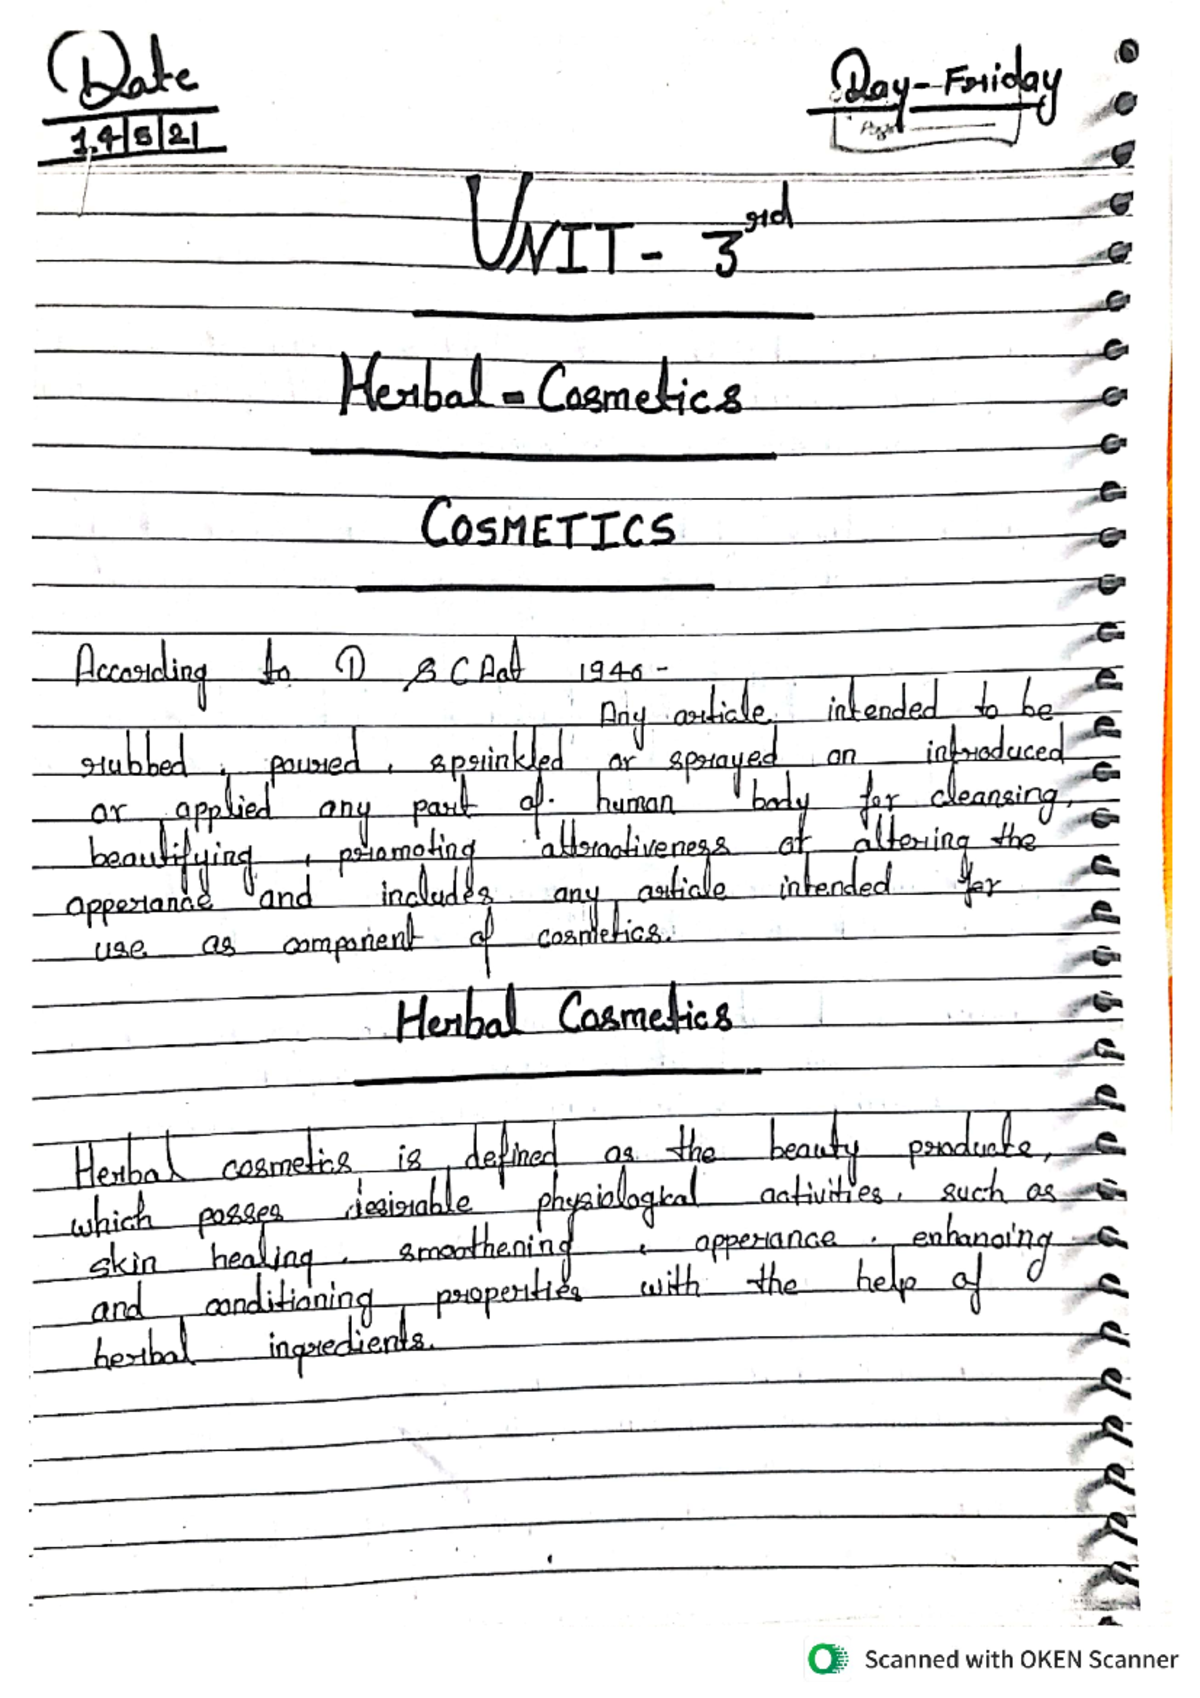 Date
14/5/21
Day-Friday
Page
UNIT- 3rd
Herbal - Cosmetics
COSMETICS
According to D & C Act 1940 -
Any article intended to be
rubbed, poured, sprinkled or sprayed on introduced
or applied any part of human body for cleansing,
beautifying, promoting attractiveness of altering the
apperance and includes any article intended for
use as component of cosmetics.
Herbal Cosmetics
Herbal cosmetics is defined as the beauty products,
which posses desirable physiologcal activities, such as
skin healing, smoothening, apperance, enhancing
and conditioning properties with the help of
herbal ingredients.
Scanned with OKEN Scanner